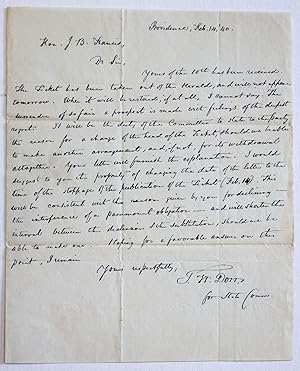 Providence, Feb. 14, '40.
Hon. J. B. Francis,
Dr Sir,
Yours of the 10th has been received
The Ticket has been taken out of the Herald, and will not appear
tomorrow. When it will be restored, if at all, I cannot say. The
surrender of so fair a prospect is made with feelings of the deepest
regret. It will be the duty of the Committee to state to the party
the reason for a change of the head of the Ticket should we be able
to make another arrangement, and, if not, for its withdrawal
altogether. Your letter will furnish the explanation. I would
suggest to you the propriety of changing the date of the letter to the
time of the stoppage of the publication of the Ticket (Feb. 14). This
will be consistent with the reason given by you for declining —
the interference of a paramount obligation — and will shorten the
interval between the declension & the substitution, should we be
able to make one. Hoping for a favorable answer on this
point, I remain
Yours respectfully,
T. W. Dorr
for State Comee